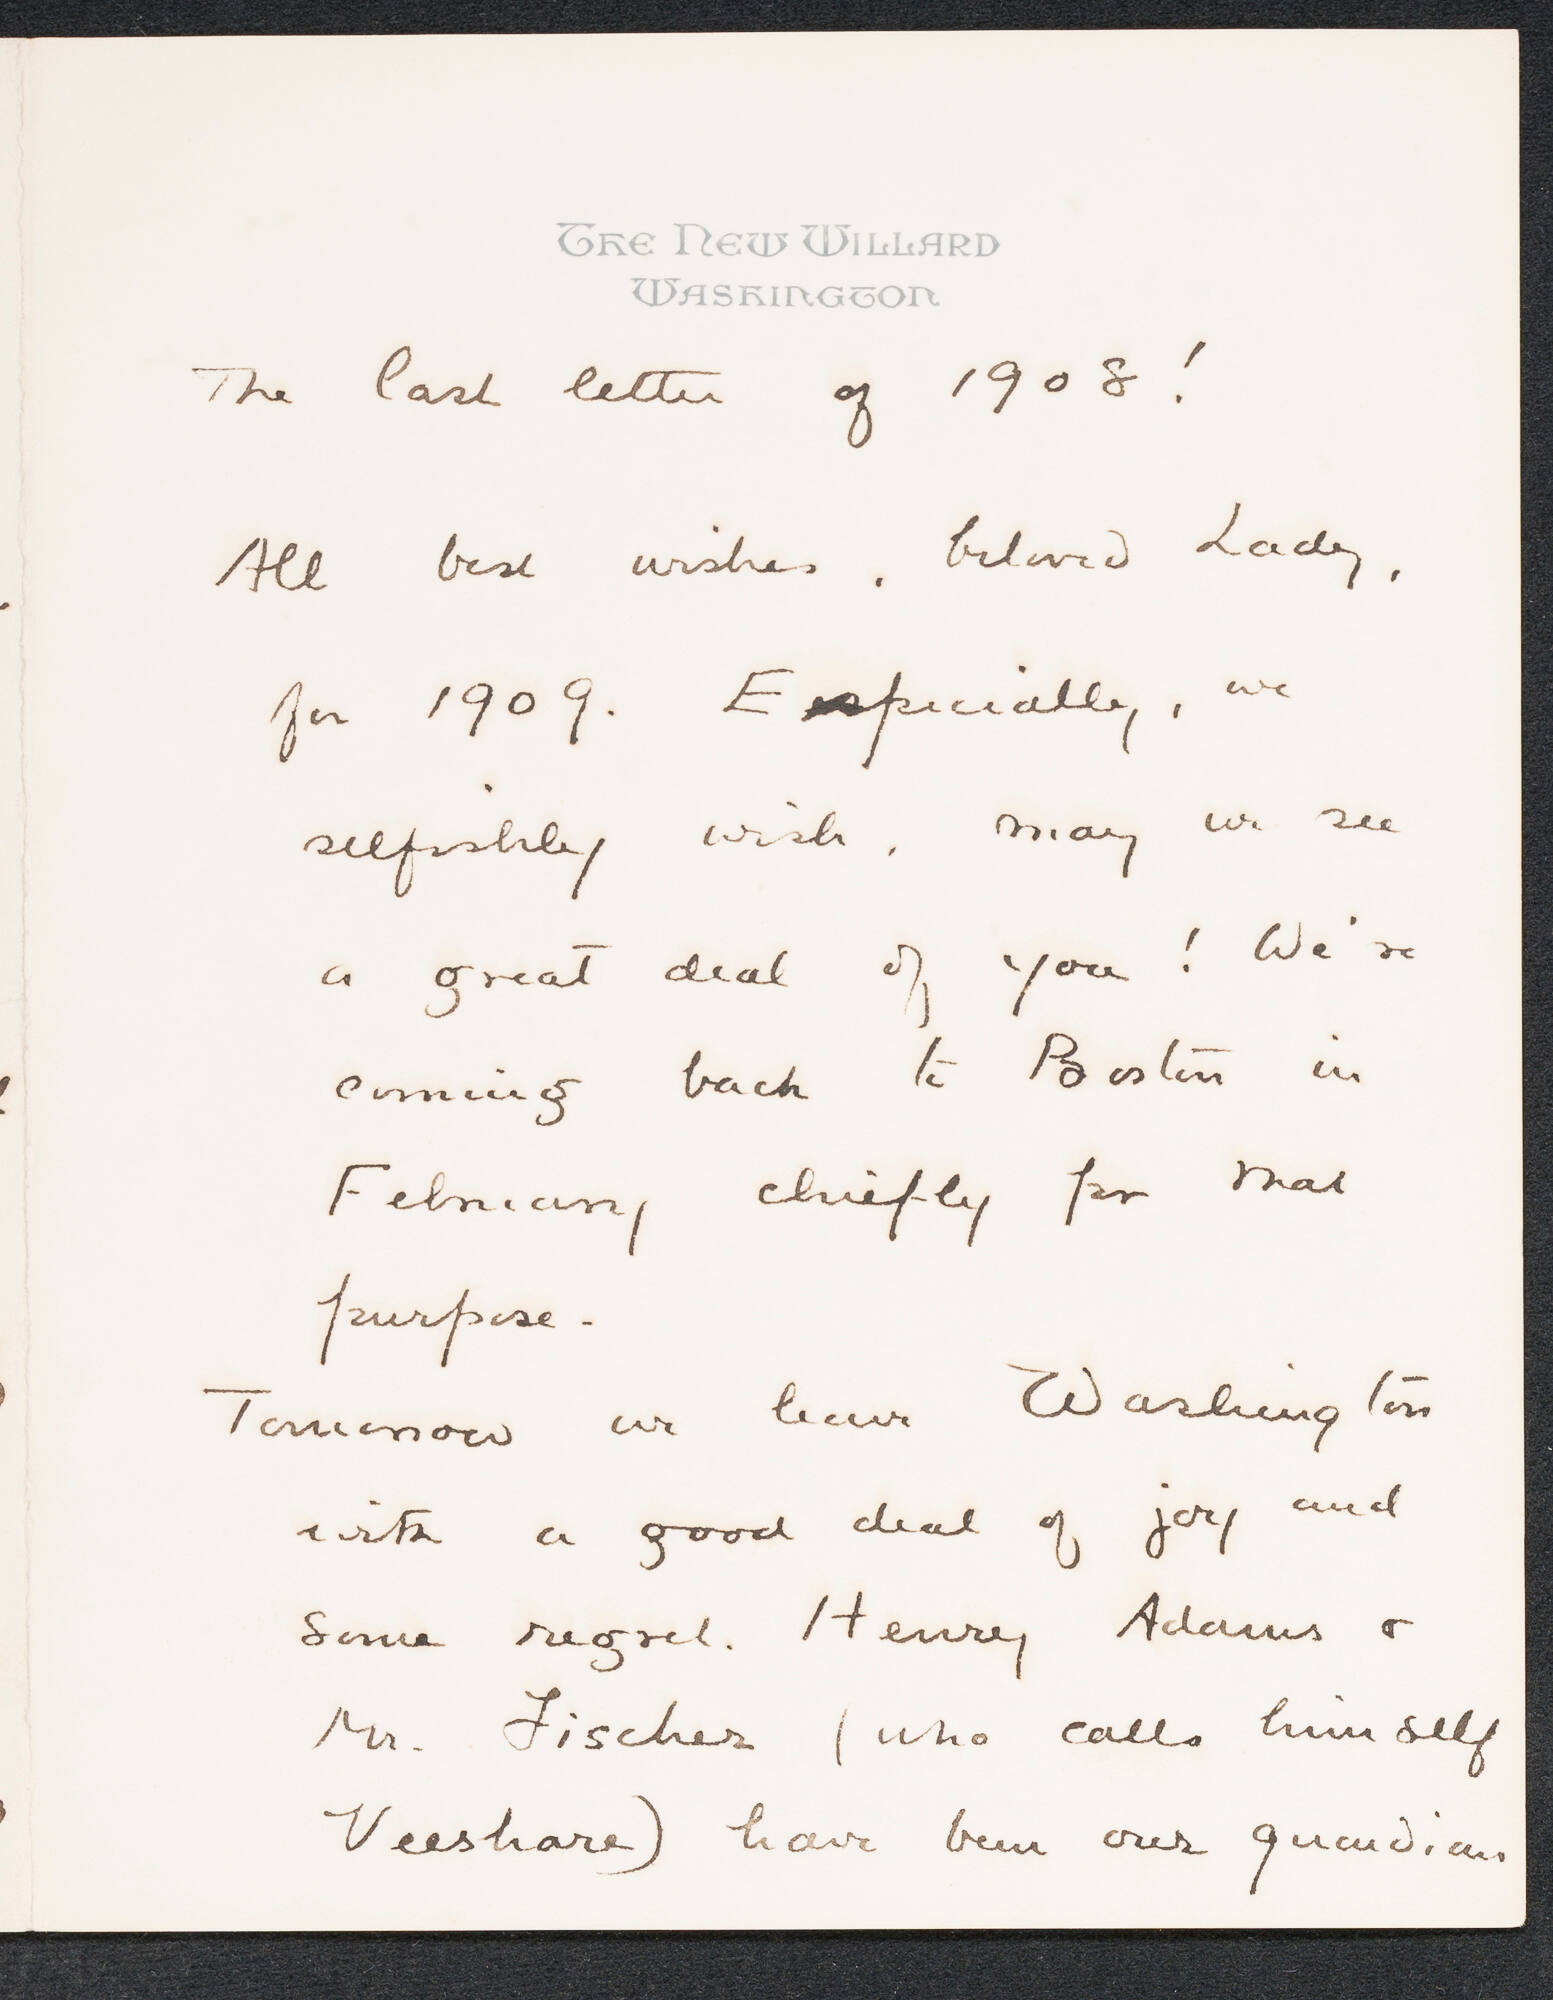 The New Willard
Washington
The last letter of 1908!
All best wishes, beloved Lady,
for 1909. Especially, we
selfishly wish, may we see
a great deal of you! We're
coming back to Boston in
February chiefly for that
purpose.
Tomorrow we leave Washington
with a good deal of joy and
some regret. Henry Adams &
Mr. Fischer (who calls himself
Veeshare) have been our guardian